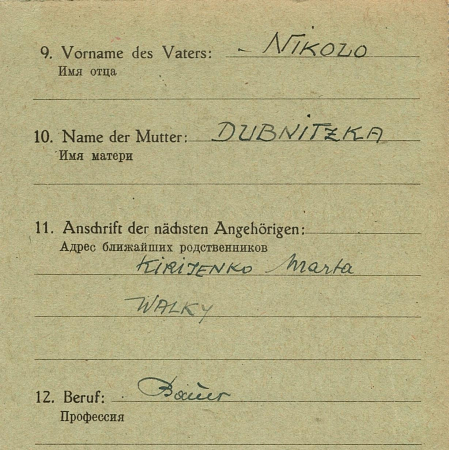 9. Vorname des Vaters: NIKOLO
Имя отца
10. Name der Mutter: DUBNITZKA
Имя матери
11. Anschrift der nächsten Angehörigen:
Адрес ближайших родственников
KIRIJENKO Marta
WALKY
12. Beruf: Bauer
Профессия